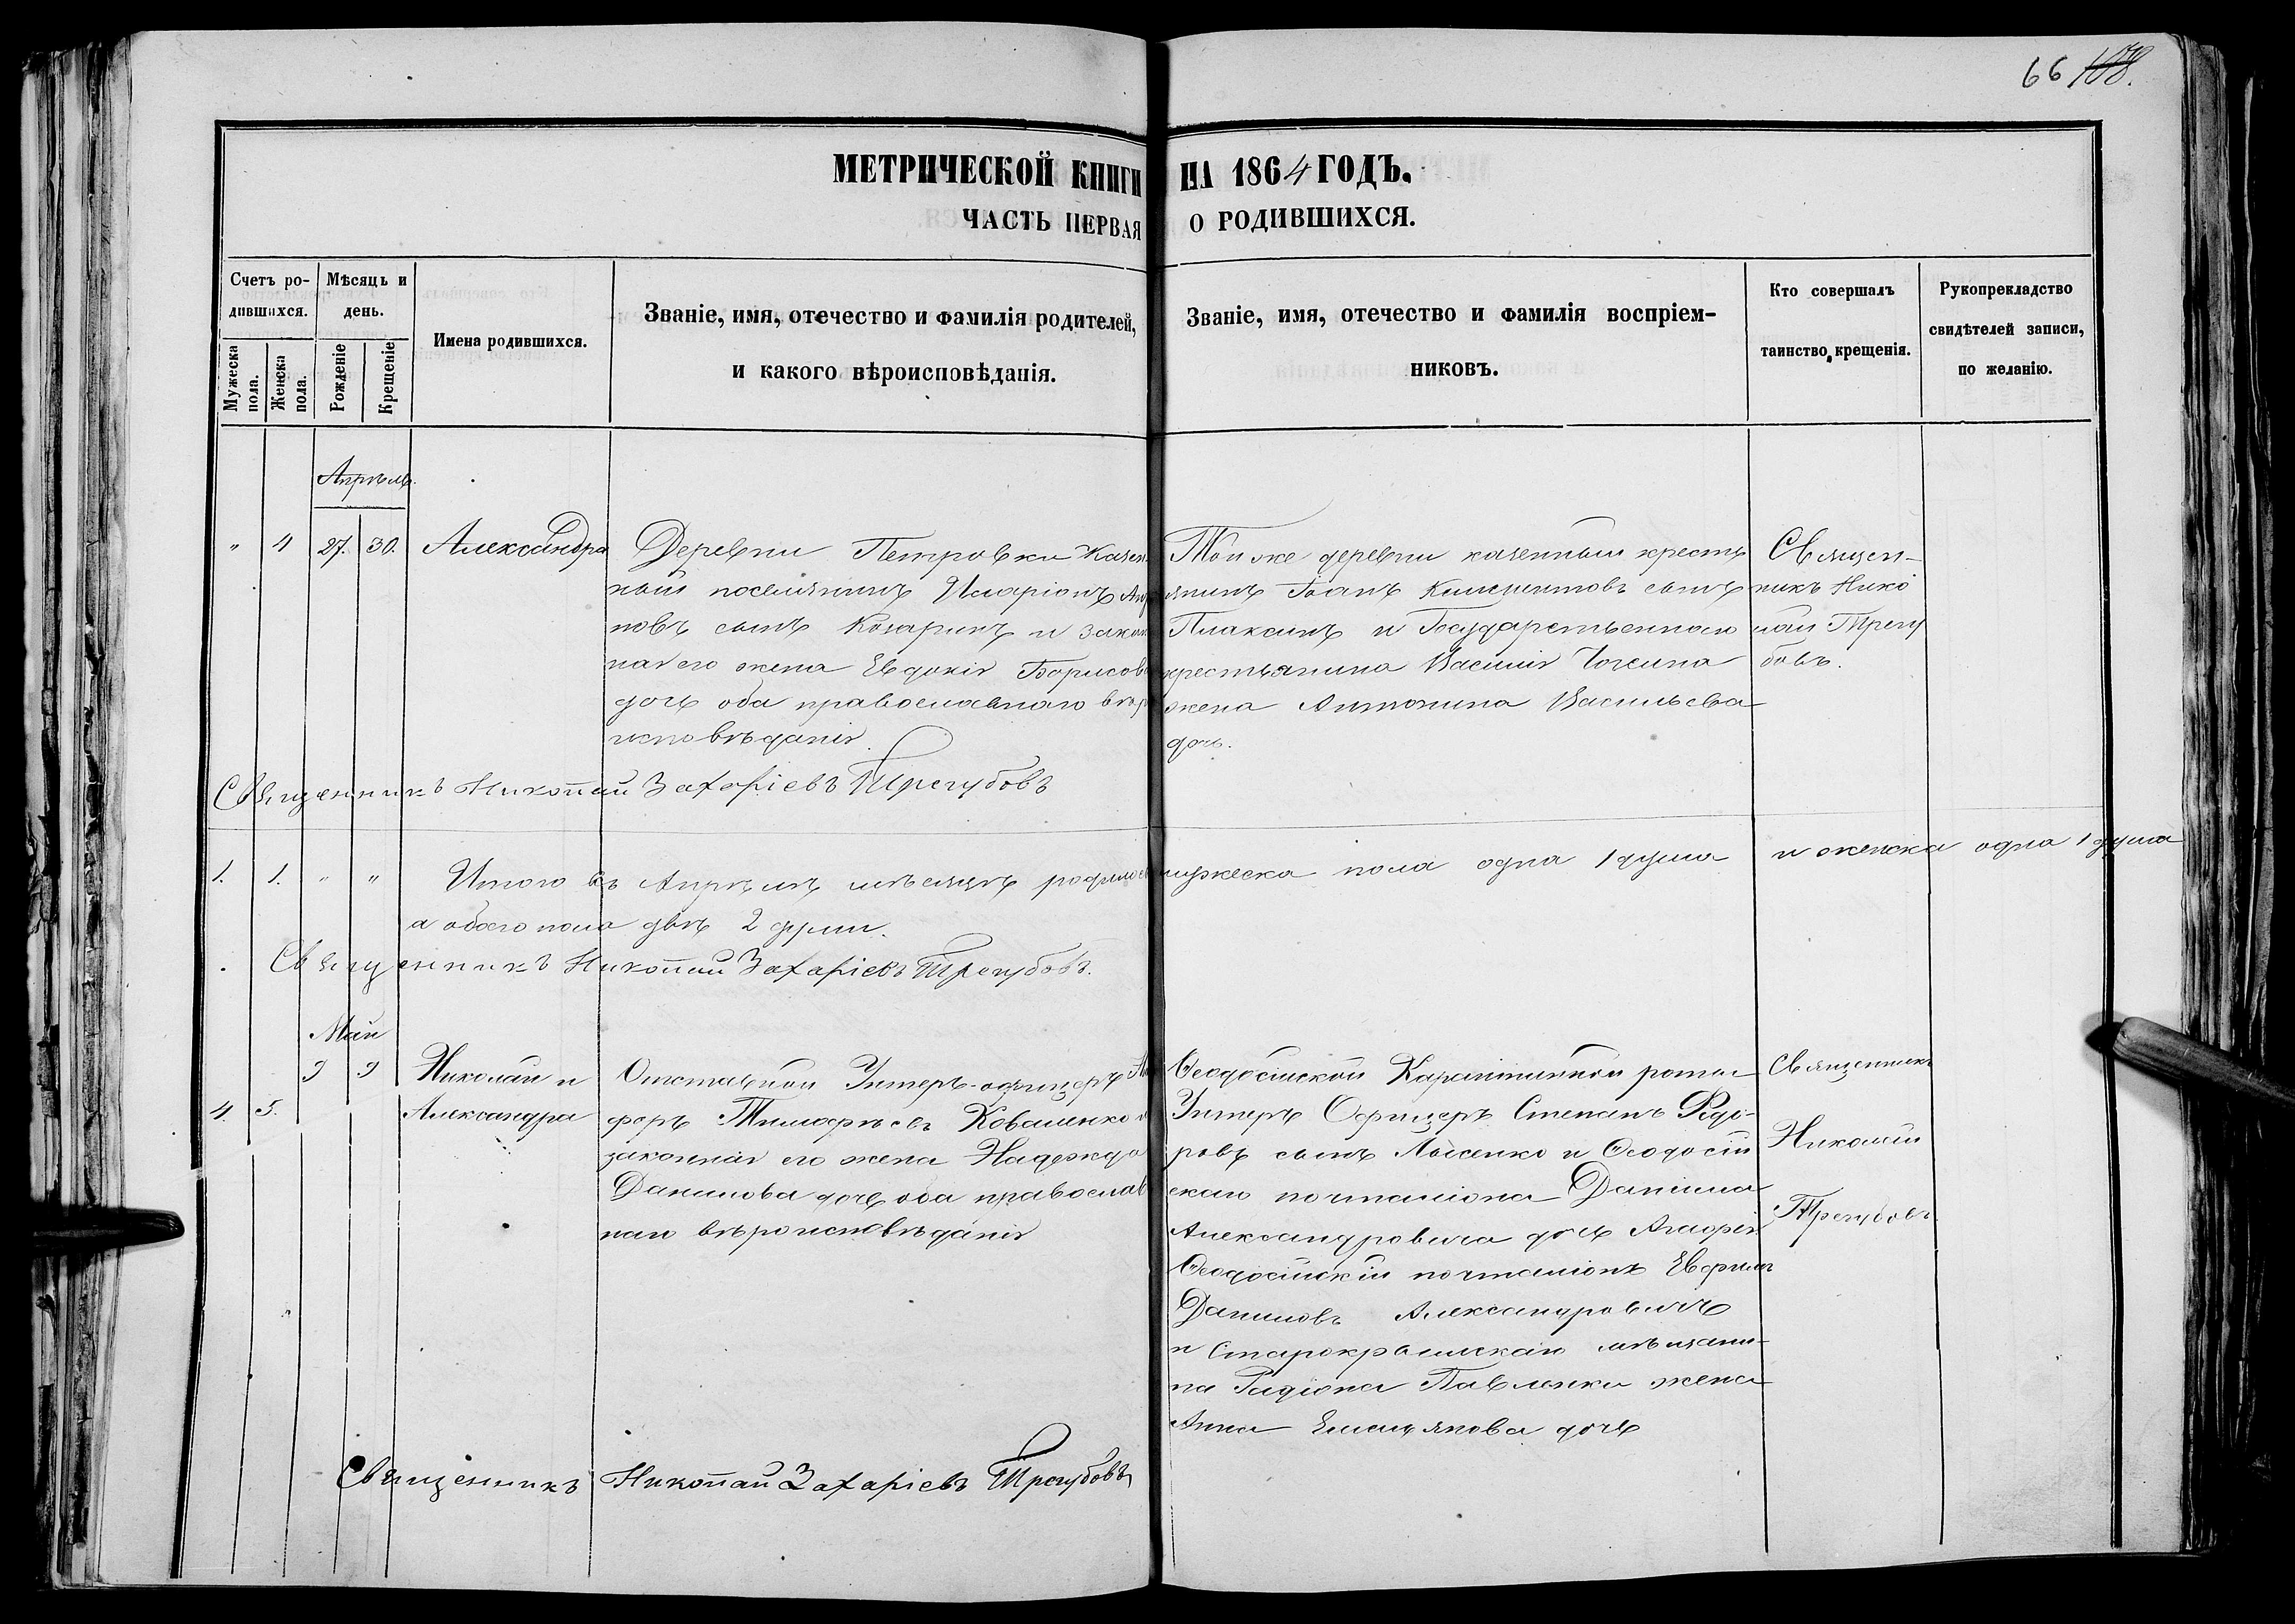 66 108.
МЕТРИЧЕСКОЙ КНИГИ НА 1864 ГОДЪ.
ЧАСТЬ ПЕРВАЯ О РОДИВШИХСЯ.
Счетъ ро-
дившихся.
Мужеска
пола.
Женска
пола.
Мѣсяцъ и
день.
Рожденіе
Крещеніе
Имена родившихся.
Званіе, имя, отечество и фамилія родителей,
и какого вѣроисповѣданія.
Званіе, имя, отечество и фамилія воспріем-
никовъ.
Кто совершалъ
таинство крещенія.
Рукоприкладство
свидѣтелей записи,
по желанію.
Апрѣль.
" 4 27. 30. Александра
Деревни Петровки Казен
ный поселянинъ Иларіонъ
новъ сынъ Козаринъ и закон
ная его жена Евдокія Борисов
дочь оба православнаго вѣр
исповѣданія.
Той же деревни казенный крестья
янинъ Іоанъ Климентовъ сынъ
Плаксинъ и Государственнаго
крестьянина Василія
жена Антонина Васильева
дочь.
Священ-
никъ Нико
лай Трегу
бовъ.
Священникъ Николай Захаріевъ Трегубовъ
1. 1. " " Итого въ Апрѣлѣ мѣсяцѣ родилось мужеска пола одна 1 душа и женска одна 1 душа
а обоего пола двѣ 2 души.
Священникъ Николай Захаріевъ Трегубовъ.
Май
9 9 Николай и
4. 5. Александра
Отставной Унтеръ-офицеръ Ни
форъ Тимофѣевъ Коваленко и
законная его жена Надежда
Данилова дочь оба православ
наго вѣроисповѣданія
Ѳеодосійской Карантинной роты
Унтеръ Офицеръ Степанъ Ѳедо-
ровъ сынъ Лысенко и Ѳеодосій
скаго почталіона Даніила
Александровича дочь
Ѳеодосійскій почталіонъ Евфимъ
Даниловъ Александровичъ
и Старокрымскаго мѣщани-
на Радіона Павленки жена
Анна Емельянова дочь
Священникъ
Николай
Трегубовъ.
Священникъ Николай Захаріевъ Трегубовъ